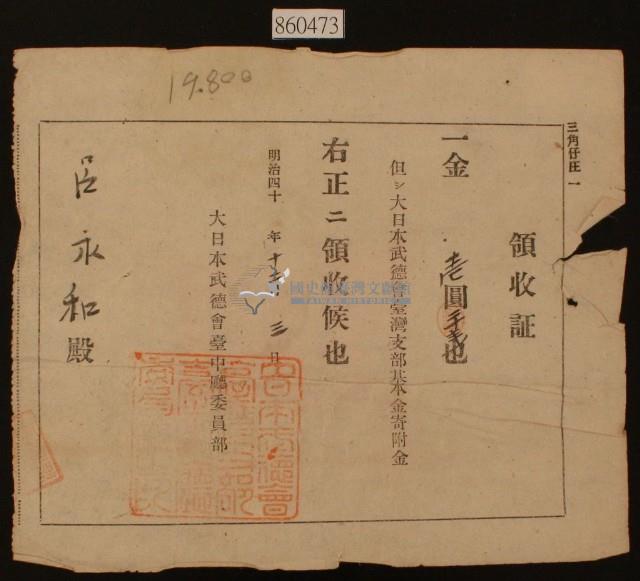 860473
19.800
三角仔庄一
領收証
一金 壱圓 也
但シ大日本武德會臺灣支部基本金寄附金
右正ニ領收候也
明治四十 年十 三日
大日本武德會臺中廳委員部
呂永和殿
國史館臺灣文獻館
TAIWAN HISTORICA